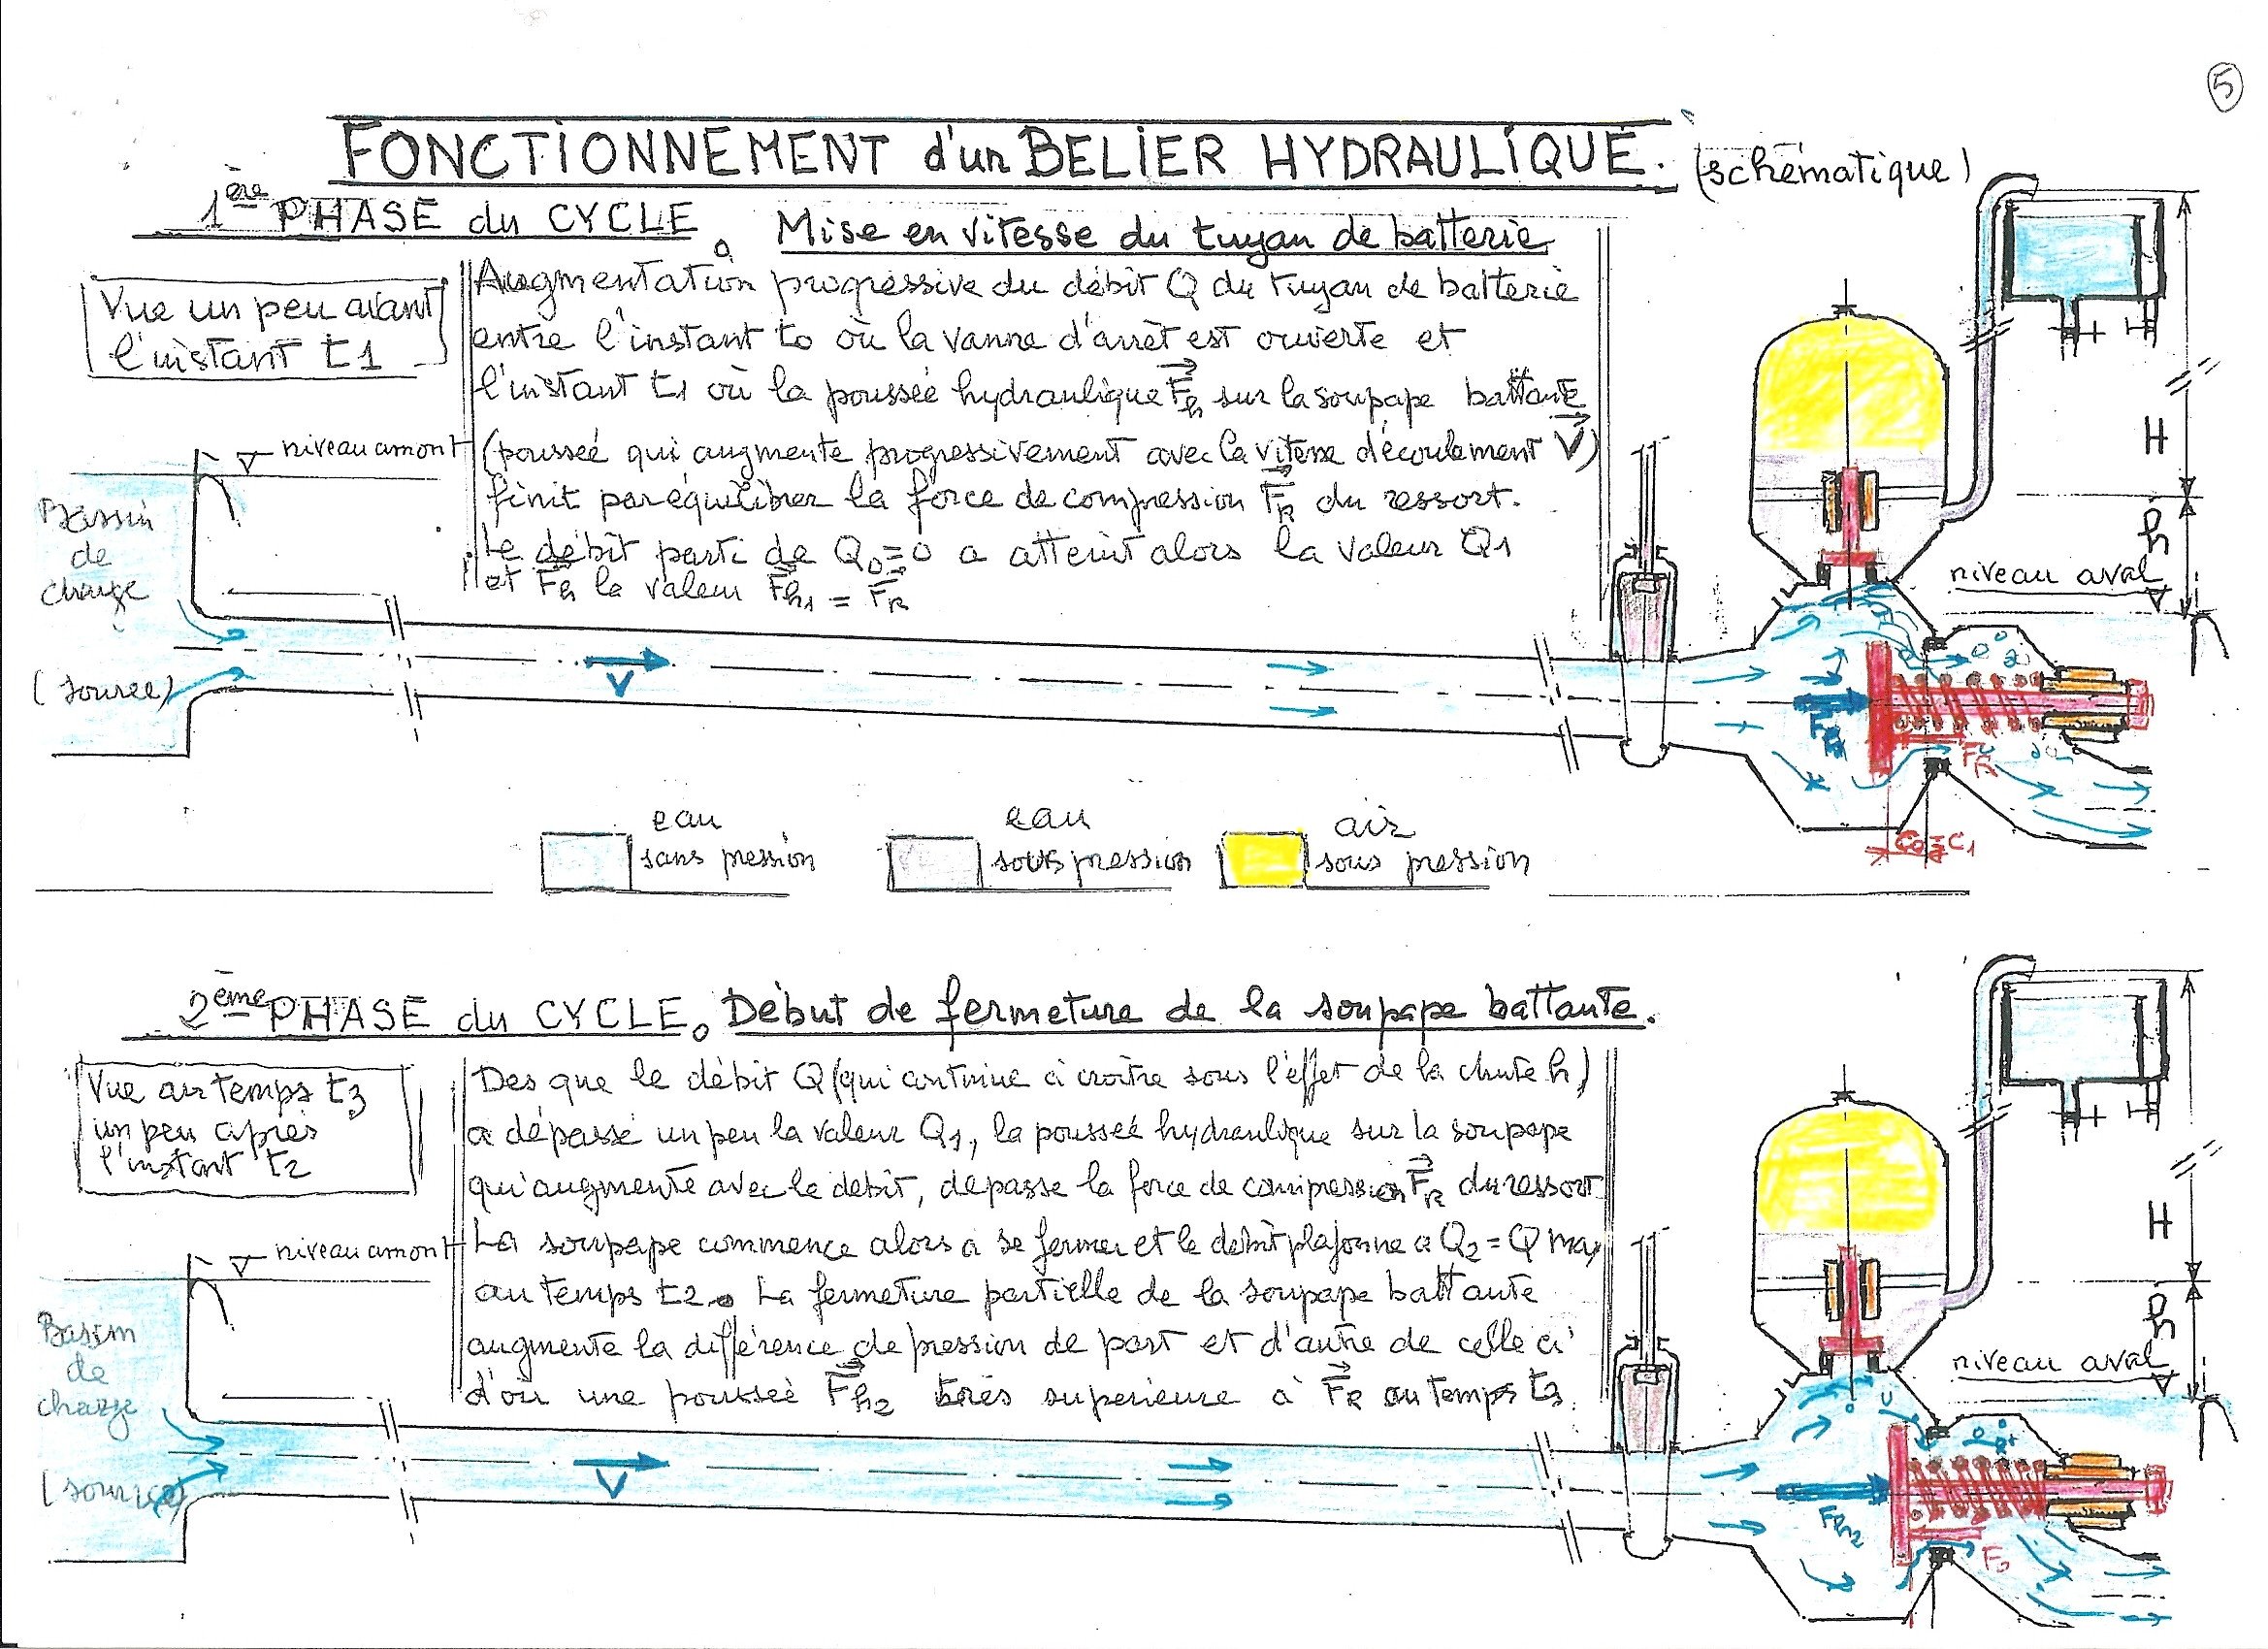 5
FONCTIONNEMENT d'un BELIER HYDRAULIQUE. (schématique)
1ère PHASE du CYCLE. Mise en vitesse du tuyau de batterie
Vue un peu avant
l'instant t1
Augmentation progressive du débit Q du tuyau de batterie
entre l'instant to où la vanne d'arrêt est ouverte et
l'instant t1 où la poussée hydraulique Fh sur la soupape battante
(poussée qui augmente progressivement avec la vitesse d'écoulement V)
finit par équilibrer la force de compression FR du ressort.
Le débit parti de Q0=0 a atteint alors la valeur Q1
et Fh la valeur Fh1 = FR
niveau amont
Bassin
de
charge
(source)
V
H
h
niveau aval
Fh1
FR
C0=C1
eau
sans pression
eau
sous pression
air
sous pression
2ème PHASE du CYCLE. Début de fermeture de la soupape battante.
Vue au temps t3
un peu après
l'instant t2
Des que le débit Q (qui continue à croître sous l'effet de la chute h)
a dépassé un peu la valeur Q1, la poussée hydraulique sur la soupape
qui augmente avec le débit, dépasse la force de compression FR du ressort
La soupape commence alors à se fermer et le débit plafonne à Q2 = Q max
au temps t2. La fermeture partielle de la soupape battante
augmente la différence de pression de part et d'autre de celle ci
d'où une poussée Fh2 très supérieure à FR au temps t3.
niveau amont
Bassin
de
charge
(source)
V
H
h
niveau aval
Fh2